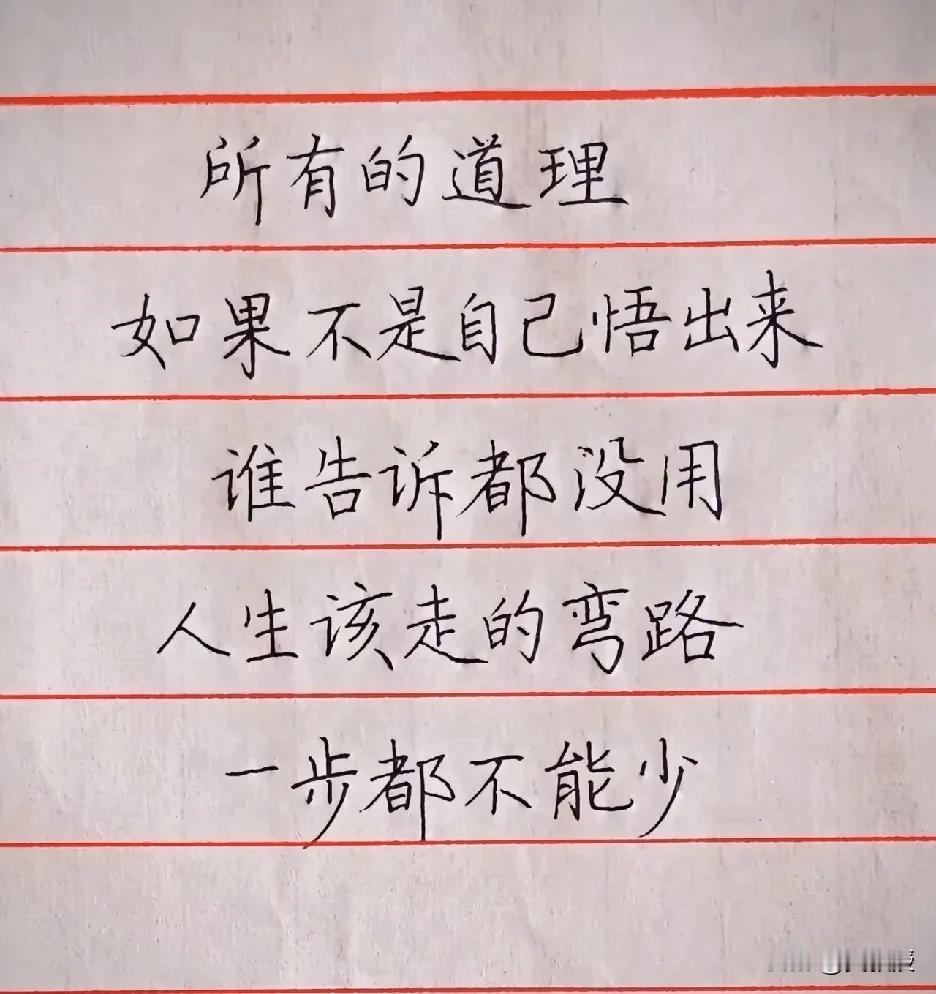 所有的道理
如果不是自己悟出来
谁告诉都没用
人生该走的弯路
一步都不能少